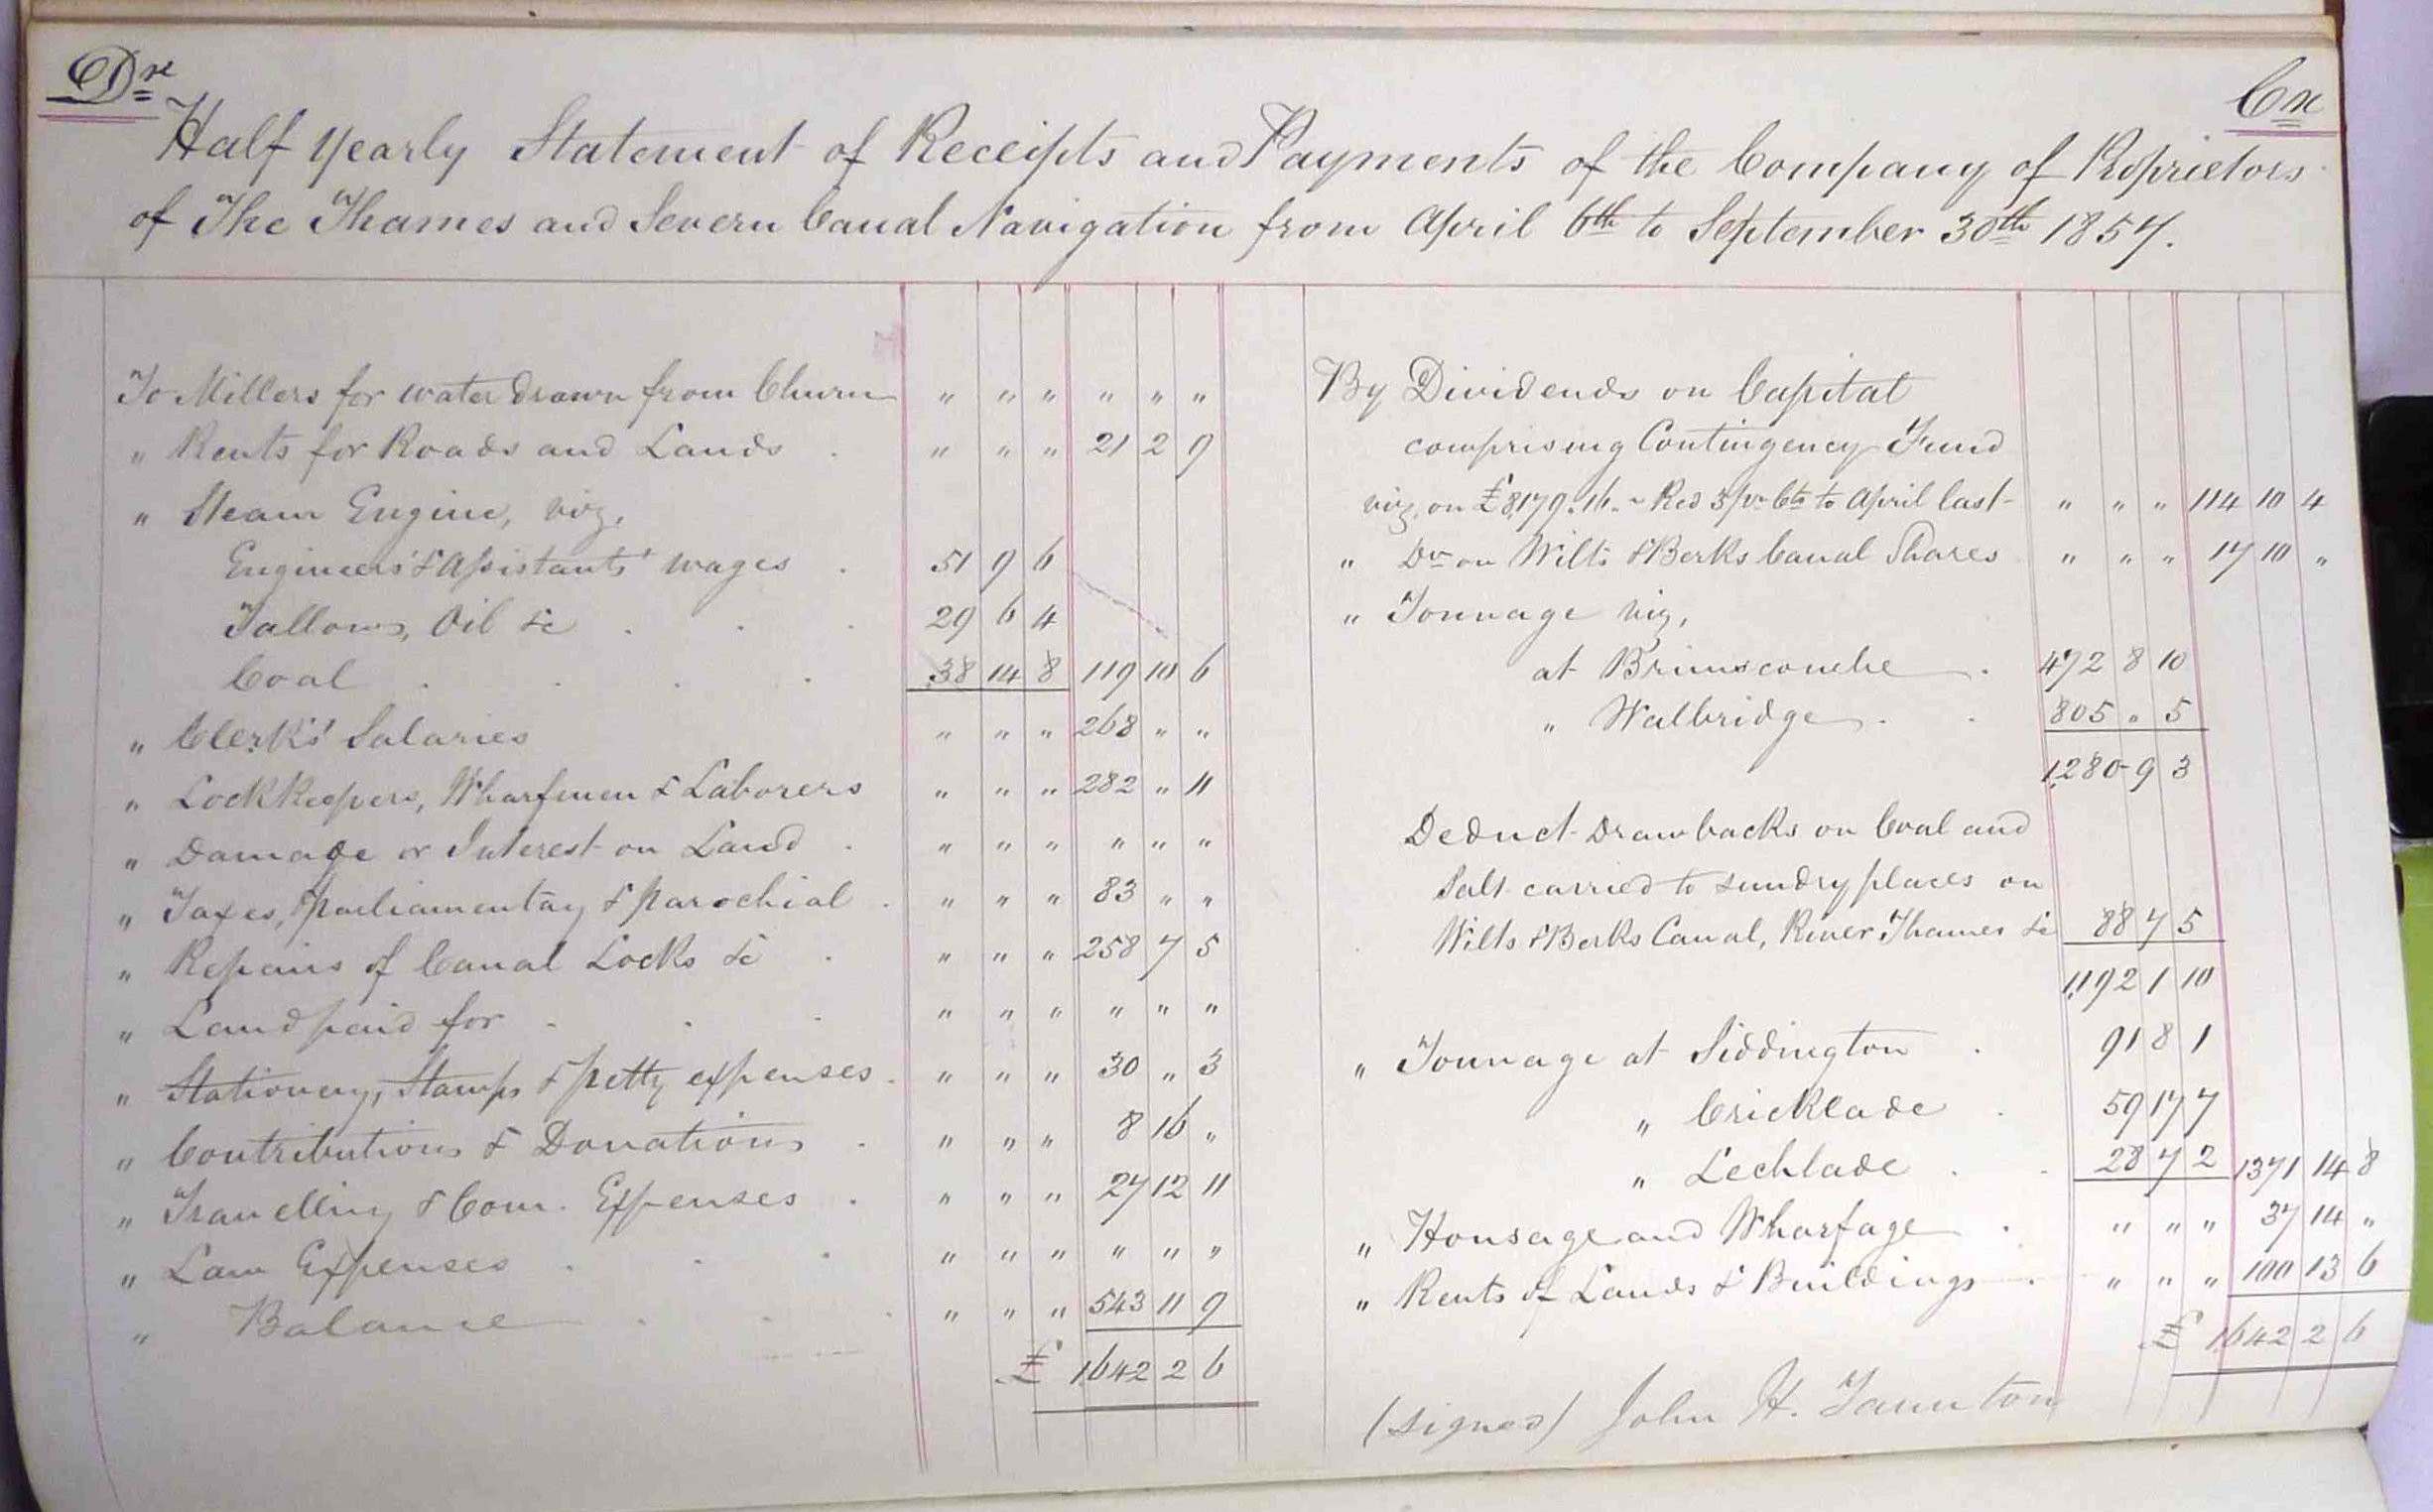 Dr
Cr
Half Yearly Statement of Receipts and Payments of the Company of Proprietors
of The Thames and Severn Canal Navigation from April 6th to September 30th 1857.
To Millers for water drawn from Churn " " " " " "
" Rents for Roads and Lands . " " " 21 2 9
" Steam Engine, viz,
Engineers' & Assistants' wages . 51 9 6
Tallow, Oil &c . . . 29 6 4
Coal . . . . 38 14 8 119 10 6
" Clerks' Salaries " " " 268 " "
" Lockkeepers, Wharfmen & Laborers " " " 282 " 11
" Damage or Interest on Land . " " " " " "
" Taxes, Parliamentay & Parochial . " " " 83 " "
" Repairs of Canal Locks &c . " " " 258 7 5
" Land paid for . . . " " " " " "
" Stationery, Stamps & petty expenses . " " " 30 " 3
" Contributions & Donations . " " " 8 16 "
" Travelling & Com. Expenses . " " " 27 12 11
" Law Expenses . . . " " " " " "
" Balance . . . " " " 543 11 9
£ 1642 2 6
By Dividends on Capital
comprising Contingency Fund
viz, on £8,179.16.- Red 3 pr Cts to April last- " " " 114 10 4
" Do on Wilts & Berks Canal Shares " " " 17 10 "
" Tonnage viz,
at Brimscombe . 472 8 10
" Walbridge . . 805 " 5
1,280 9 3
Deduct Drawbacks on Coal and
Salt carried to sundry places on
Wilts & Berks Canal, River Thames &c 88 7 5
1,192 1 10
" Tonnage at Siddington . 91 8 1
" Cricklade . 59 17 7
" Lechlade . . 28 7 2 1371 14 8
" Housage and Wharfage . " " " 37 14 "
" Rents of Lands & Buildings . " " " 100 13 6
£ 1642 2 6
(signed) John H. Taunton